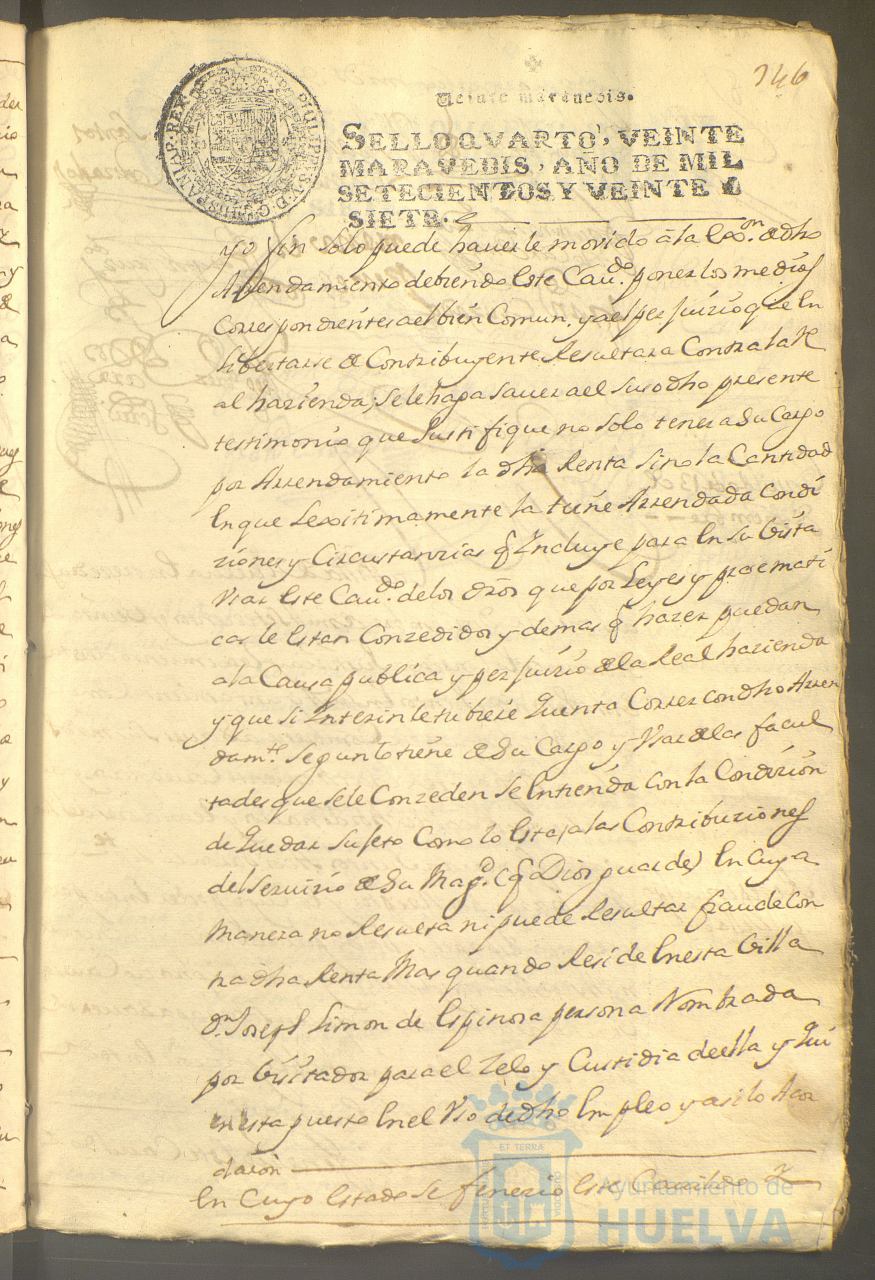 146
Veinte maravedis.
SELLO QVARTO, VEINTE
MARAVEDIS, AÑO DE MIL
SETECIENTOS Y VEINTE Y
SIETE.
PHILIPPUS V D G HISPANIAR REX
y solo puede haverle movido â la exon. de dho
Arrendamiento debiendo este Cavdo. poner los medios
Correspondientes a el bien Comun, y a el perjuizio que en
libertarse de Contribuyente Resultara Contra la Re
al hazienda; se le haga saver a el suso dho presente
testimonio que Justifique no solo tener a su Cargo
por Arrendamiento la dha Renta sino la Cantidad
en que Lexitimamente la tiene Arrendada Condi
ziones y Circustanzias q Incluye para en su vista
Vsar este Cavdo. de los dros que por Leyes y pracmati
cas le estan Conzedidos y demas q hazer puedan
a la Causa publica y perjuizio de la Real hazienda
y que si Interin le tubiese quenta Correr con dho Arren
damto. segun lo tiene de su Cargo y Vsar de las facul
tades que se le Conzeden se entienda con la Condizion
de quedar sujeto Como lo esta, a las Contribuziones
del servizio de su Magd. (q Dios guarde) en Cuya
manera no Resulta ni puede Resultar fraude Con
tra dha Renta Mas quando Reside en esta Villa
Dn. Joseph Simon de Espinosa persona Nombrada
por Visitador para el Zelo y Custidia de ella y qui
en esta puesto en el Vso de dho empleo y asi lo Acor
daron
en Cuyo estado se fenezio este Cavildo
ET TERRÆ
Ayuntamiento de
HUELVA